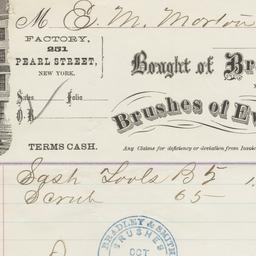 M E. M. Morton
FACTORY,
251
PEARL STREET,
NEW YORK.
Bought of Br
Sales Folio
O. B.
Brushes of Ev
TERMS CASH.
Any Claims for deficiency or deviation from Invoic
Sash Tools B 5 1.
Scrub 65
BRADLEY & SMITH
BRUSHES
OCT